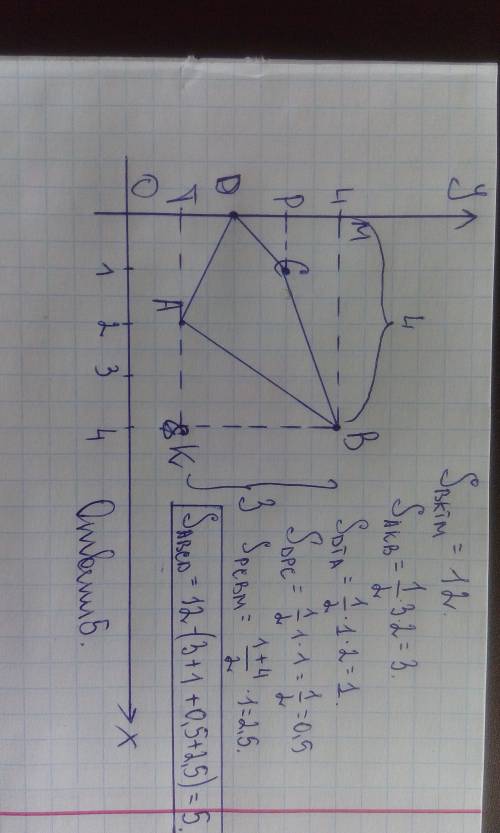 y
4 M B
4
P C
D
T A K
3
O 1 2 3 4 x
S_BKTM = 12.
S_AKB = 1/2 · 3 · 2 = 3.
S_DTA = 1/2 · 1 · 2 = 1.
S_DPC = 1/2 · 1 · 1 = 1/2 = 0,5
S_PCBM = (1+4)/2 · 1 = 2,5.
S_ABCD = 12 - (3 + 1 + 0,5 + 2,5) = 5.
Ответ: 5.